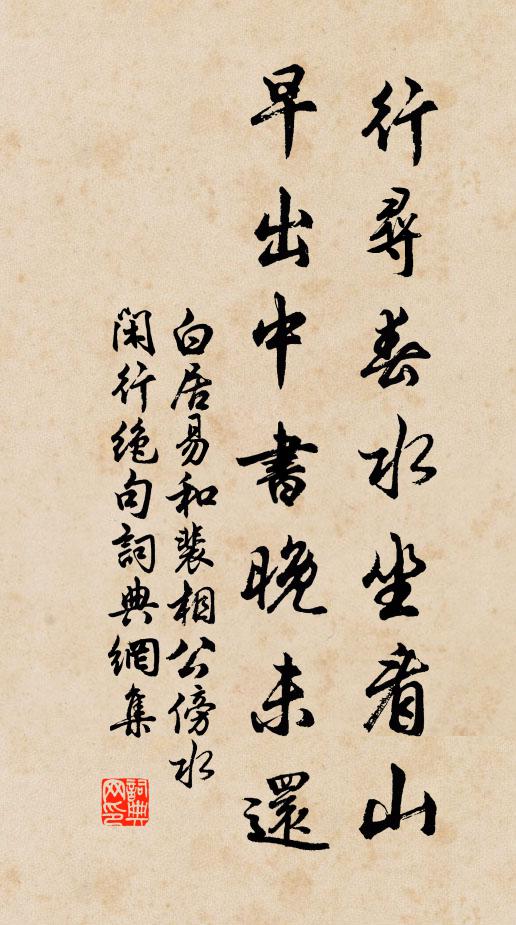 行尋春水坐看山
早出中書晚未還
白居易和裴相公傍水
閑行絕句詞典網集
詞典
网印